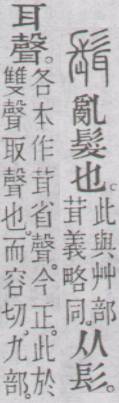 髶亂髮也。此與艸部茸義略同。从髟。
耳聲。各本作茸省聲。今正。此於雙聲取聲也。而容切。九部。